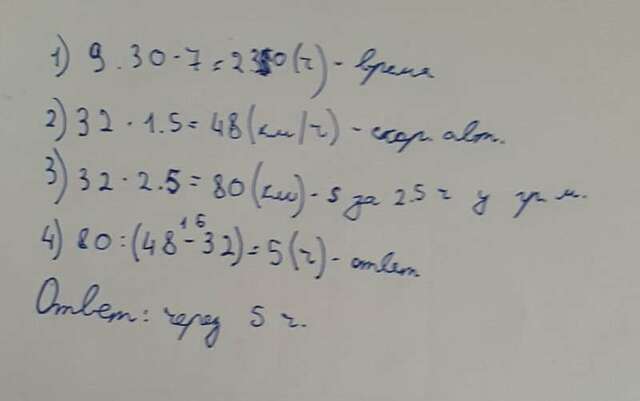 1) 9.30 - 7 = 2.30 (ч) - время
2) 32 · 1.5 = 48 (км/ч) - скор. авт.
3) 32 · 2.5 = 80 (км) - S за 2.5 ч у гр. м.
4) 80 : (48 - 32) = 5 (ч) - ответ
16
Ответ: через 5 ч.